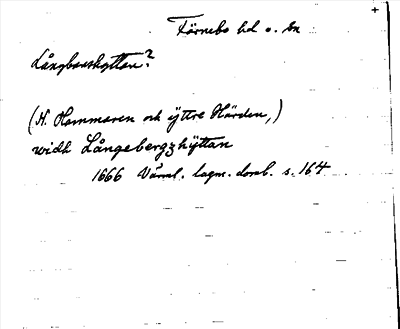 Färnebo hd o. sn
Långbanshyttan?
(N. Hammaren och yttre Härden,)
widh Långebergzhyttan
1666 Värml. lagm. domb. s. 164